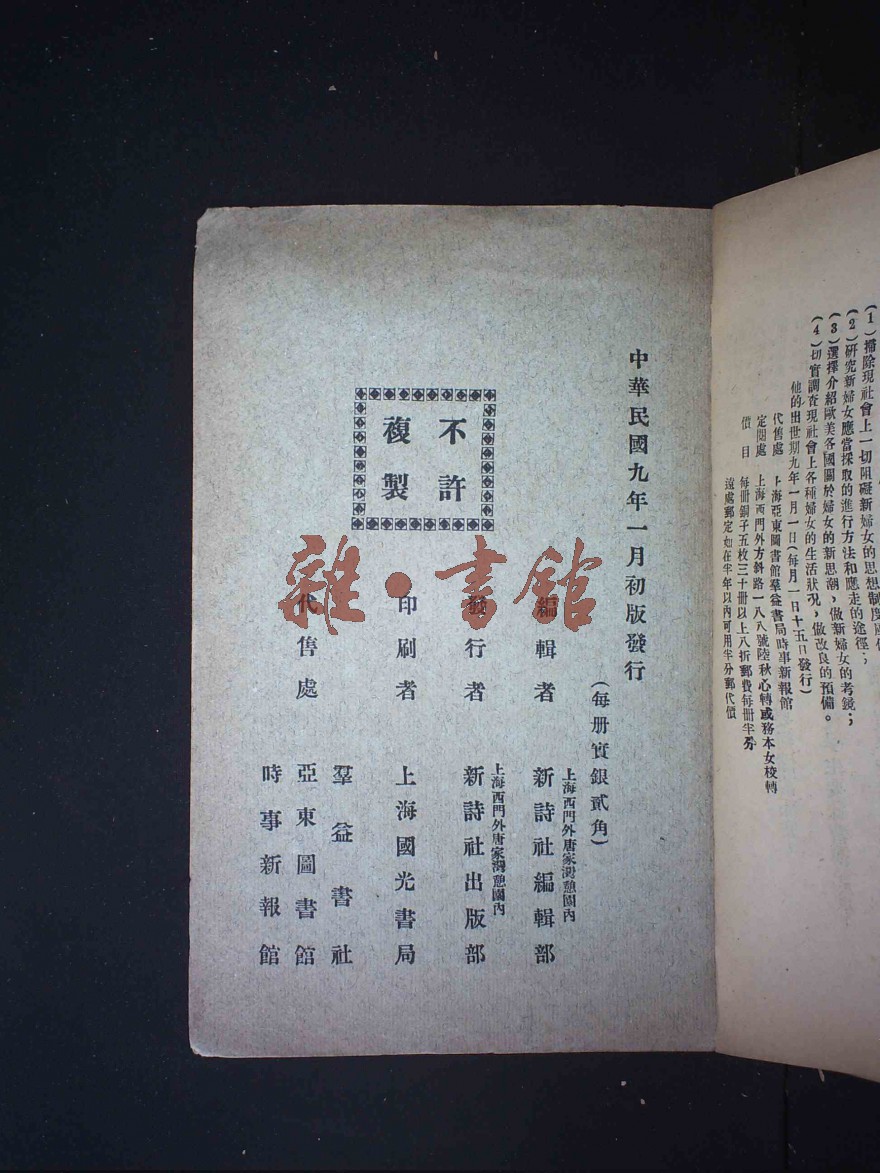 (1)掃除現社會上一切阻礙新婦女的思想制度
(2)研究新婦女應當採取的進行方法和應走的途徑；
(3)選擇介紹歐美各國關於婦女的新思潮，做新婦女的考鏡；
(4)切實調查現社會上各種婦女的生活狀況，做改良的預備。
他的出世期九年一月一日(每月一日十五日發行)
代售處　上海亞東圖書館羣益書局時事新報館
定閱處　上海西門外方斜路一八八號陸秋心轉或務本女校轉
價目　每冊銅子五枚三十冊以上八折郵費每冊半分
遠處郵定如在半年以內可用半分郵代價
中華民國九年一月初版發行
(每册實銀貳角)
不許
複製
編輯者　上海西門外唐家灣憩園內
新詩社編輯部
發行者　上海西門外唐家灣憩園內
新詩社出版部
印刷者　上海國光書局
代售處　羣益書社
亞東圖書館
時事新報館
雜·書館